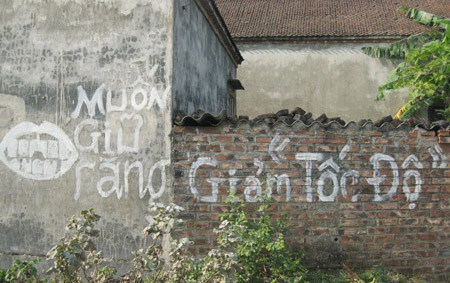 MUỐN
GIỮ
răng
Giảm "Tốc Độ"